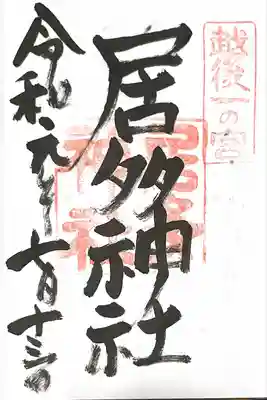 越後一の宮
居多神社
令和元年七月十三日